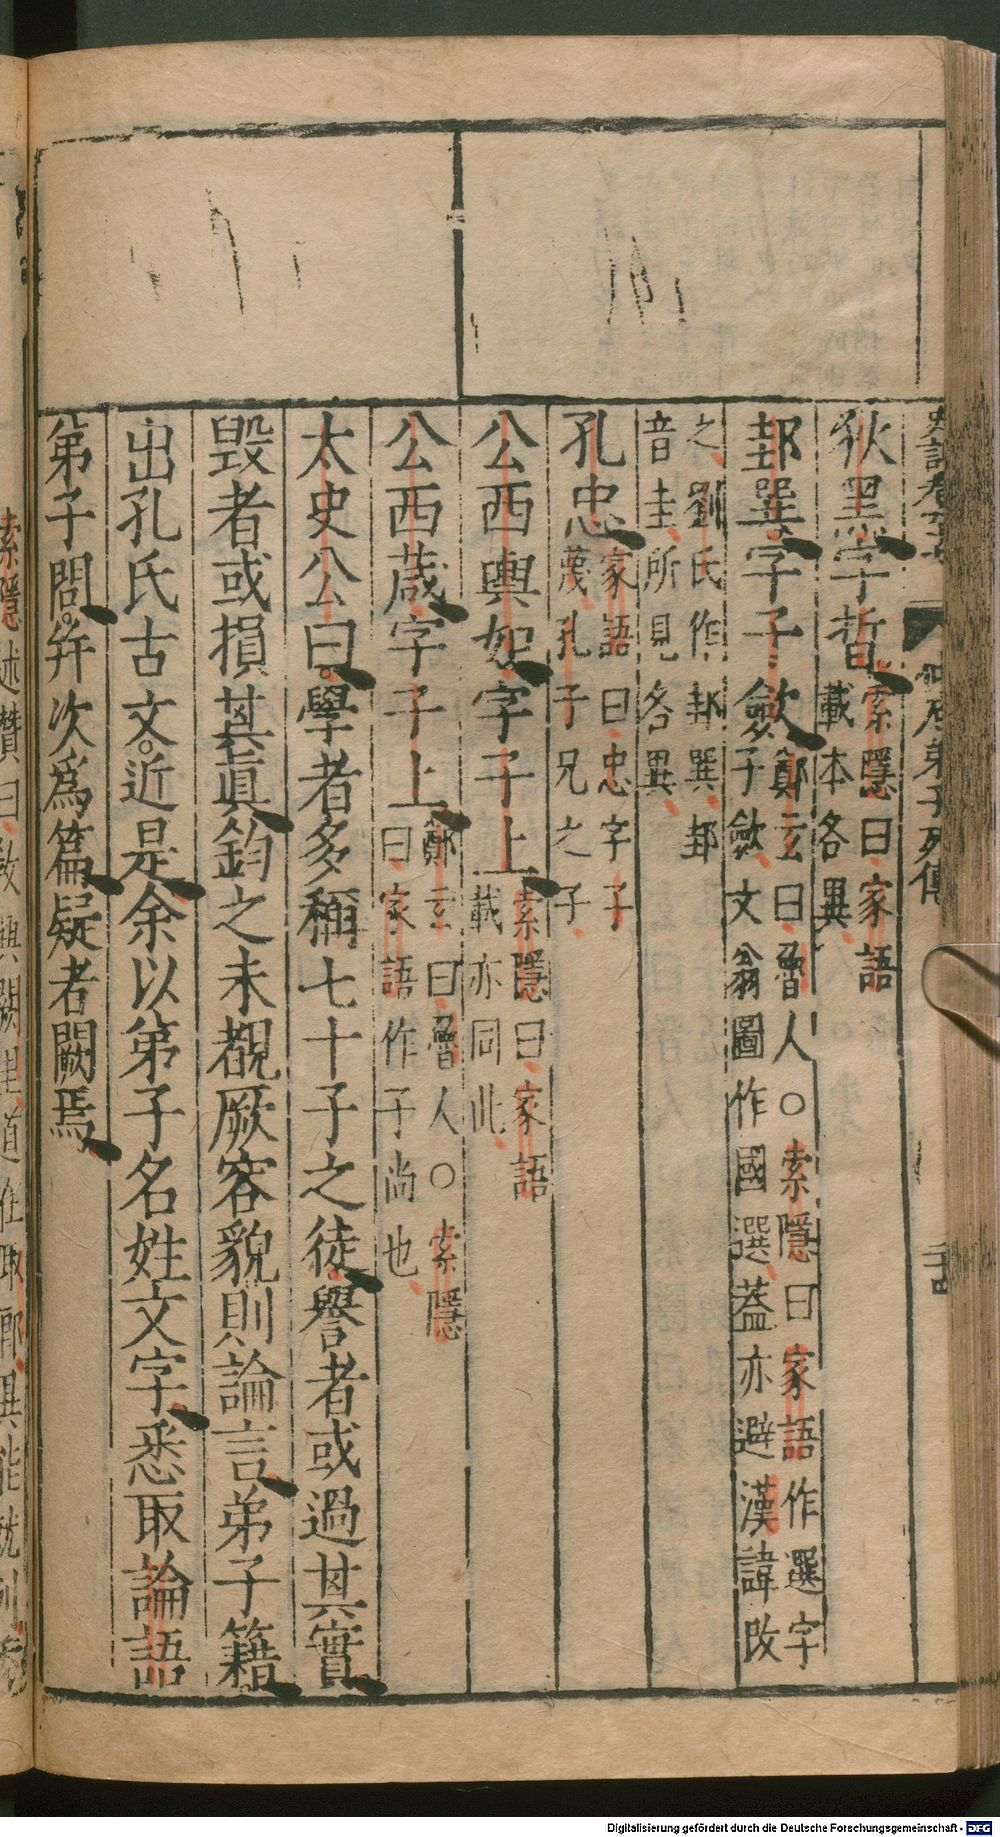 仲尼弟子列傳
狄黑字晳索隱曰家語載本各異
邽巽字子歛鄭玄曰魯人○索隱曰家語作選字子歛文翁圖作國選蓋亦避漢諱改
之劉氏作邽巽邽音圭所見各異
孔忠家語曰忠字子蔑孔子兄之子
公西輿如字子上索隱曰家語載亦同此
公西蒧字子上鄭玄曰魯人○索隱曰家語作子尚也
太史公曰學者多稱七十子之徒譽者或過其實
毀者或損其真鈞之未覩厥容貌則論言弟子籍
出孔氏古文近是余以弟子名姓文字悉取論語
弟子問并次為篇疑者闕焉
Digitalisierung gefördert durch die Deutsche Forschungsgemeinschaft - DFG